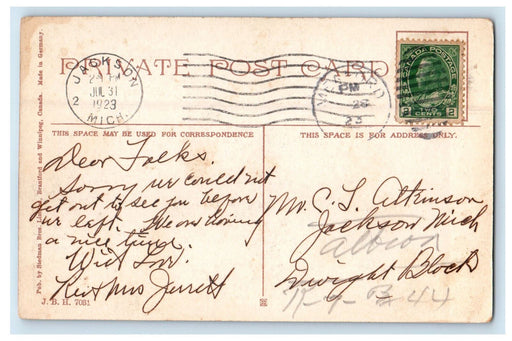 PRIVATE POST CARD
JACKSON
2- PM
JUL 31
1923
2
MICH.
PM
26
23
CANADA POSTAGE
2 CENTS 2
THIS SPACE MAY BE USED FOR CORRESPONDENCE
THIS SPACE IS FOR ADDRESS ONLY.
Dear Folks.
Sorry we could not
get out to see you before
we left. We are having
a nice time.
With Love
Rev & Mrs Jerrett
Mr. C. L. Atkinson
Jackson Mich
albion
Dwight Block
R-9-B 44
Pub. by Stedman Bros. Brantford and Winnipeg, Canada. Made in Germany.
J. B. H. 7081